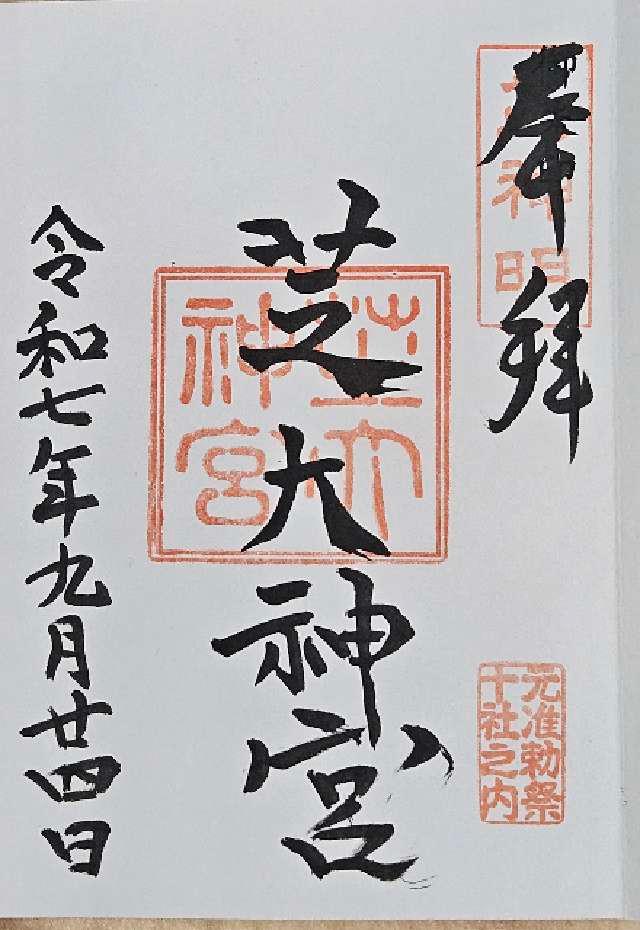 奉拝
芝神明
芝大神宮
芝大
神宮
元准勅祭
十社之内
令和七年九月廿四日